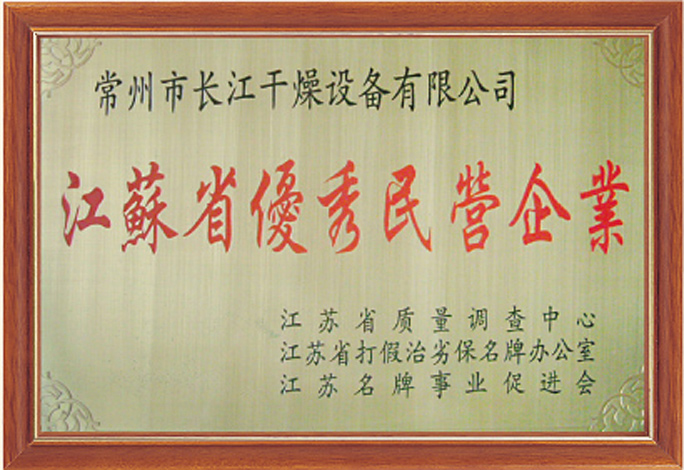 常州市长江干燥设备有限公司
江蘇省優秀民營企業
江苏省质量调查中心
江苏省打假治劣保名牌办公室
江苏名牌事业促进会